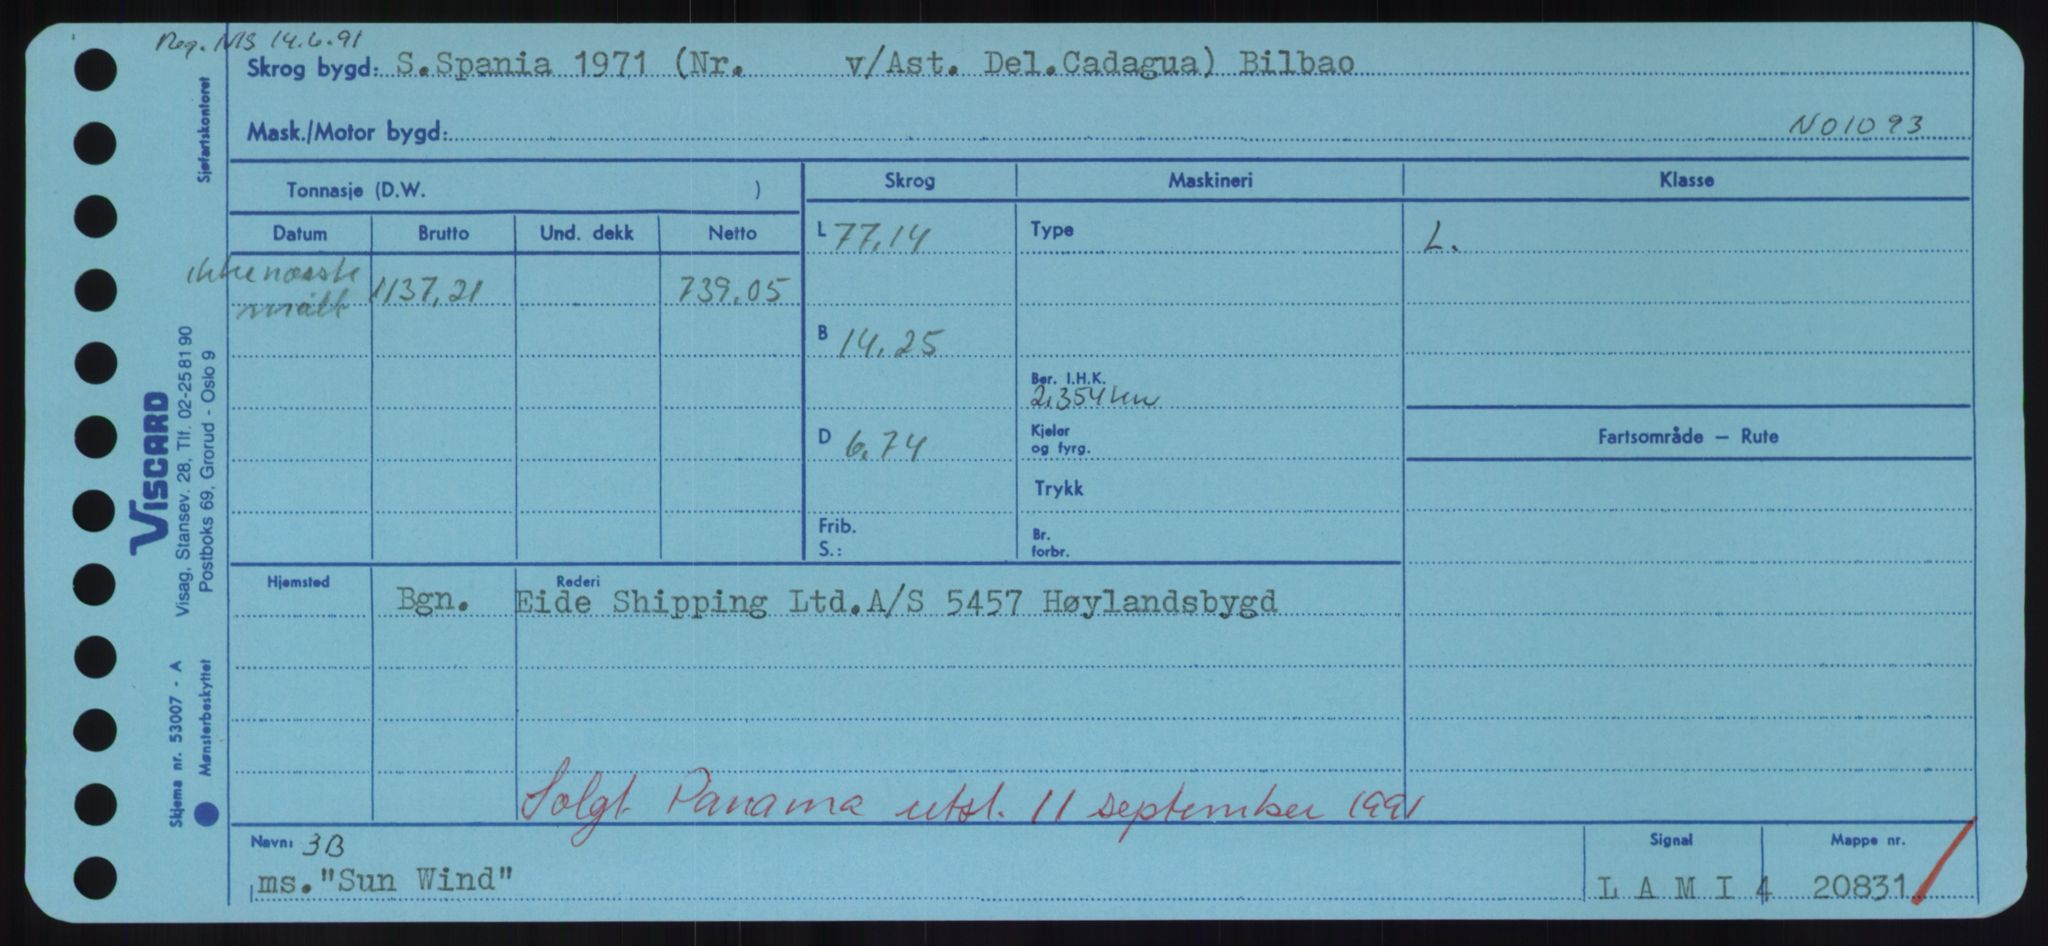 Reg. NIS 14.6.91
Skrog bygd: S.Spania 1971 (Nr. v/Ast. Del.Cadagua) Bilbao
Mask./Motor bygd: N01093
Sjøfartskontoret
Tonnasje (D.W. )
Skrog
Maskineri
Klasse
Datum
Brutto
Und. dekk
Netto
L 77,14
Type
L.
ikke næsste
målt
1137,21
739.05
B 14,25
Ber. I.H.K.
2,354 kw
D 6,74
Kjeler
og fyrg.
Fartsområde — Rute
Trykk
Frib.
S.:
Br.
forbr.
VISCARD
Visag, Stansev. 28, Tlf. 02-25 81 90
Postboks 69, Grorud - Oslo 9
Hjemsted
Rederi
Bgn. Eide Shipping Ltd.A/S 5457 Høylandsbygd
Skjema nr. 53007 - A
Mønsterbeskyttet
Solgt Panama utsl. 11 september 1991
Navn: 3B
Signal
Mappe nr.
ms."Sun Wind"
L A M I 4
20831